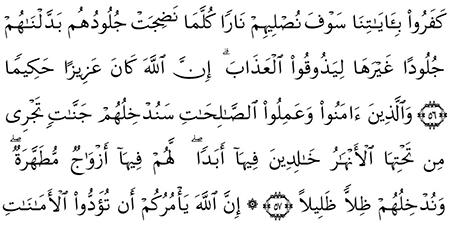 كَفَرُوا۟ بِـَٔايَـٰتِنَا سَوْفَ نُصْلِيهِمْ نَارًا كُلَّمَا نَضِجَتْ جُلُودُهُم بَدَّلْنَـٰهُمْ
جُلُودًا غَيْرَهَا لِيَذُوقُوا۟ ٱلْعَذَابَ ۗ إِنَّ ٱللَّهَ كَانَ عَزِيزًا حَكِيمًا
﴿٥٦﴾ وَٱلَّذِينَ ءَامَنُوا۟ وَعَمِلُوا۟ ٱلصَّـٰلِحَـٰتِ سَنُدْخِلُهُمْ جَنَّـٰتٍ تَجْرِى
مِن تَحْتِهَا ٱلْأَنْهَـٰرُ خَـٰلِدِينَ فِيهَآ أَبَدًا ۖ لَّهُمْ فِيهَآ أَزْوَٰجٌ مُّطَهَّرَةٌ ۖ
وَنُدْخِلُهُمْ ظِلًّا ظَلِيلًا ﴿٥٧﴾ ۞ إِنَّ ٱللَّهَ يَأْمُرُكُمْ أَن تُؤَدُّوا۟ ٱلْأَمَـٰنَـٰتِ